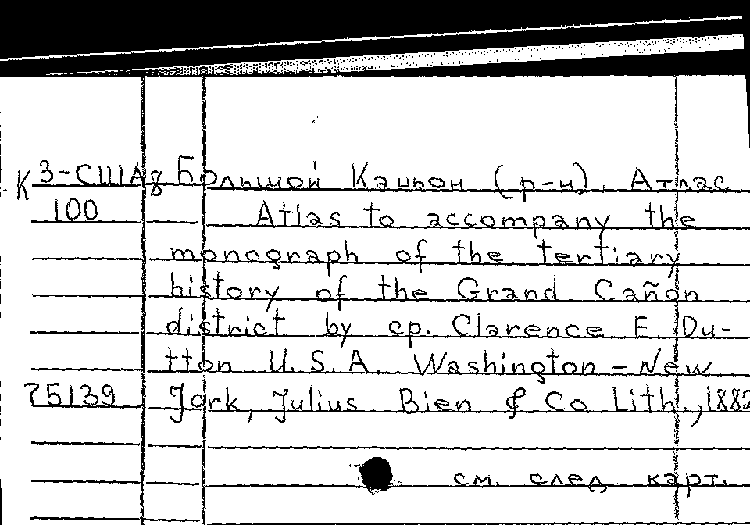 К 3-США8 Большой Каньон (р-н). Атлас
100 Atlas to accompany the
monograph of the tertiary
history of the Grand Cañon
district by cp. Clarence E. Du-
tton U.S.A. Washington – New
75139 Jork, Julius Bien & Co Lith., 1882
см. след. карт.